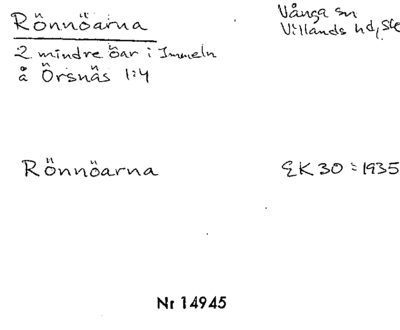 Rönnöarna
Vånga sn
Villands hd,
2 mindre öar i Immeln
å Örsnäs 1:4
Rönnöarna
EK 30 : 1935
Nr 14945